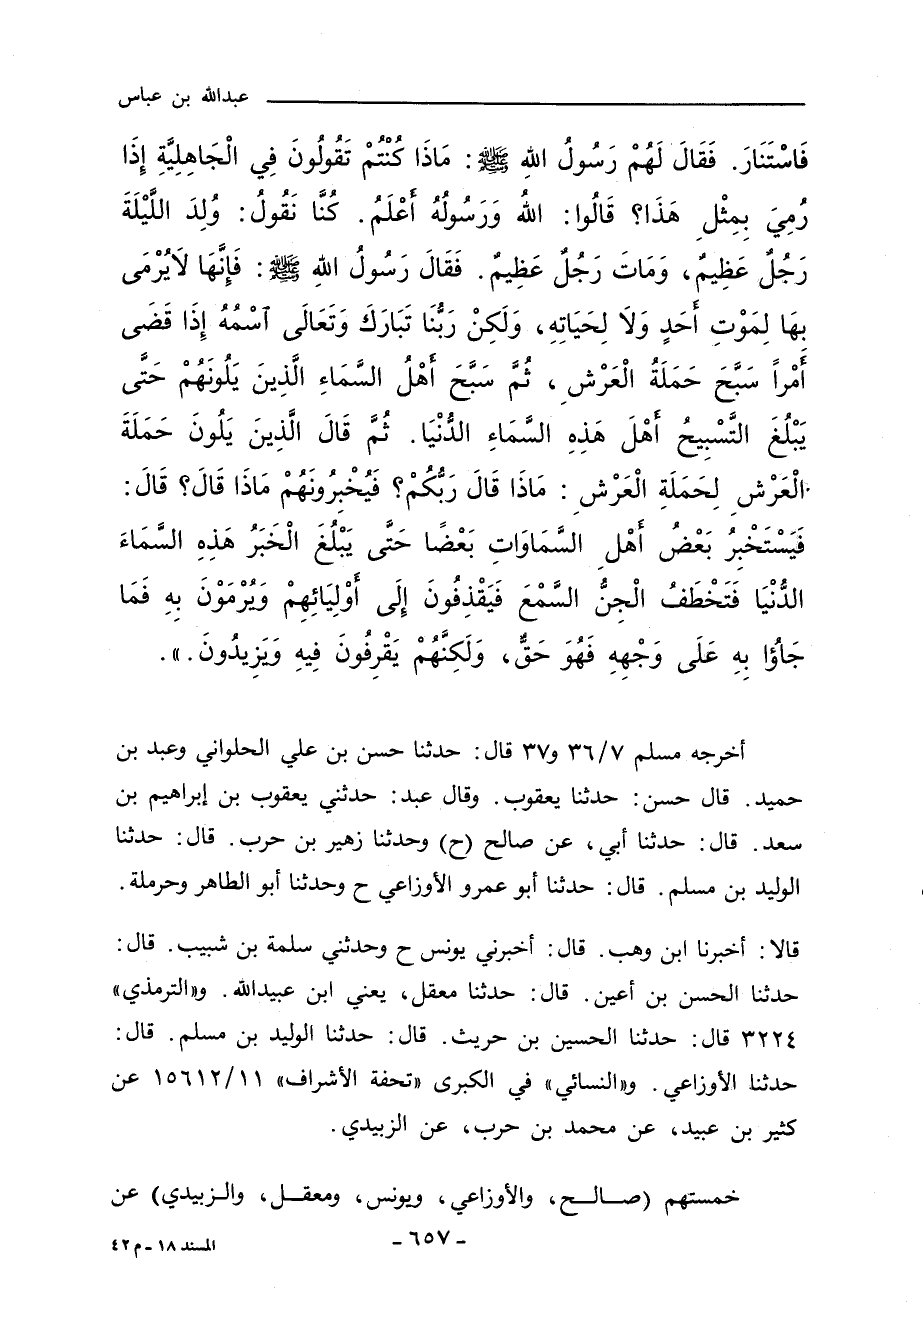 عبدالله بن عباس
فَاسْتَنَارَ. فَقَالَ لَهُمْ رَسُولُ اللهِ ﷺ: مَاذَا كُنْتُمْ تَقُولُونَ فِي الْجَاهِلِيَّةِ إِذَا
رُمِيَ بِمِثْلِ هَذَا؟ قَالُوا: اللهُ وَرَسُولُهُ أَعْلَمُ. كُنَّا نَقُولُ: وُلِدَ اللَّيْلَةَ
رَجُلٌ عَظِيمٌ، وَمَاتَ رَجُلٌ عَظِيمٌ. فَقَالَ رَسُولُ اللهِ ﷺ: فَإِنَّهَا لَايُرْمَى
بِهَا لِمَوْتِ أَحَدٍ وَلَا لِحَيَاتِهِ، وَلَكِنْ رَبُّنَا تَبَارَكَ وَتَعَالَى ٱسْمُهُ إِذَا قَضَى
أَمْراً سَبَّحَ حَمَلَةُ الْعَرْشِ، ثُمَّ سَبَّحَ أَهْلُ السَّمَاءِ الَّذِينَ يَلُونَهُمْ حَتَّى
يَبْلُغَ التَّسْبِيحُ أَهْلَ هَذِهِ السَّمَاءِ الدُّنْيَا. ثُمَّ قَالَ الَّذِينَ يَلُونَ حَمَلَةَ
الْعَرْشِ لِحَمَلَةِ الْعَرْشِ: مَاذَا قَالَ رَبُّكُمْ؟ فَيُخْبِرُونَهُمْ مَاذَا قَالَ؟ قَالَ:
فَيَسْتَخْبِرُ بَعْضُ أَهْلِ السَّمَاوَاتِ بَعْضًا حَتَّى يَبْلُغَ الْخَبَرُ هَذِهِ السَّمَاءَ
الدُّنْيَا فَتَخْطَفُ الْجِنُّ السَّمْعَ فَيَقْذِفُونَ إِلَى أَوْلِيَائِهِمْ وَيُرْمَوْنَ بِهِ فَمَا
جَاؤُا بِهِ عَلَى وَجْهِهِ فَهُوَ حَقٌّ، وَلَكِنَّهُمْ يَقْرِفُونَ فِيهِ وَيَزِيدُونَ.».
أخرجه مسلم ٣٦/٧ و٣٧ قال: حدثنا حسن بن علي الحلواني وعبد بن
حميد. قال حسن: حدثنا يعقوب. وقال عبد: حدثني يعقوب بن إبراهيم بن
سعد. قال: حدثنا أبي، عن صالح (ح) وحدثنا زهير بن حرب. قال: حدثنا
الوليد بن مسلم. قال: حدثنا أبو عمرو الأوزاعي ح وحدثنا أبو الطاهر وحرملة.
قالا: أخبرنا ابن وهب. قال: أخبرني يونس ح وحدثني سلمة بن شبيب. قال:
حدثنا الحسن بن أعين. قال: حدثنا معقل، يعني ابن عبيدالله. و«الترمذي»
٣٢٢٤ قال: حدثنا الحسين بن حريث. قال: حدثنا الوليد بن مسلم. قال:
حدثنا الأوزاعي. و«النسائي» في الكبرى «تحفة الأشراف» ١٥٦١٢/١١ عن
كثير بن عبيد، عن محمد بن حرب، عن الزبيدي.
خمستهم (صالح، والأوزاعي، ويونس، ومعقل، والزبيدي) عن
- ٦٥٧ -
المسند ١٨ - م ٤٢